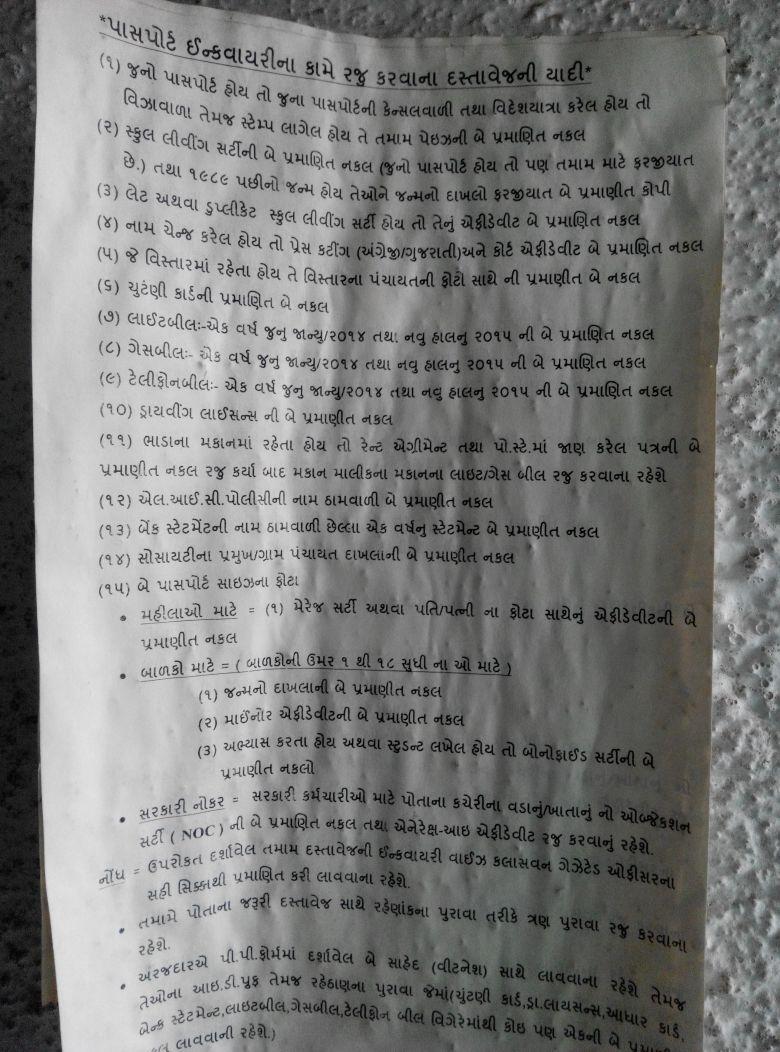 *પાસપોર્ટ ઈન્કવાયરીના કામે રજુ કરવાના દસ્તાવેજની યાદી*
(૧) જુનો પાસપોર્ટ હોય તો જુના પાસપોર્ટની કેન્સલવાળી તથા વિદેશયાત્રા કરેલ હોય તો
વિઝાવાળા તેમજ સ્ટેમ્પ લાગેલ હોય તે તમામ પેઇઝની બે પ્રમાણિત નકલ
(૨) સ્કુલ લીવીંગ સર્ટીની બે પ્રમાણિત નકલ (જુનો પાસપોર્ટ હોય તો પણ તમામ માટે ફરજીયાત
છે.) તથા ૧૯૮૯ પછીનો જન્મ હોય તેઓને જન્મનો દાખલો ફરજીયાત બે પ્રમાણીત કોપી
(૩) લેટ અથવા ડુપ્લીકેટ સ્કુલ લીવીંગ સર્ટી હોય તો તેનું એફીડેવીટ બે પ્રમાણિત નકલ
(૪) નામ ચેન્જ કરેલ હોય તો પ્રેસ કટીંગ (અંગ્રેજી/ગુજરાતી)અને કોર્ટ એફીડેવીટ બે પ્રમાણિત નકલ
(૫) જે વિસ્તારમાં રહેતા હોય તે વિસ્તારના પંચાયતની ફોટો સાથે ની પ્રમાણીત બે નકલ
(૬) ચુટંણી કાર્ડની પ્રમાણિત બે નકલ
(૭) લાઈટબીલઃ-એક વર્ષ જુનુ જાન્યુ/૨૦૧૪ તથા નવુ હાલનુ ૨૦૧૫ ની બે પ્રમાણિત નકલ
(૮) ગેસબીલઃ- એક વર્ષ જુનુ જાન્યુ/૨૦૧૪ તથા નવુ હાલનુ ૨૦૧૫ ની બે પ્રમાણિત નકલ
(૯) ટેલીફોનબીલઃ- એક વર્ષ જુનુ જાન્યુ/૨૦૧૪ તથા નવુ હાલનુ ૨૦૧૫ ની બે પ્રમાણિત નકલ
(૧૦) ડ્રાયવીંગ લાઈસન્સ ની બે પ્રમાણીત નકલ
(૧૧) ભાડાના મકાનમાં રહેતા હોય તો રેન્ટ એગ્રીમેન્ટ તથા પો.સ્ટે.માં જાણ કરેલ પત્રની બે
પ્રમાણીત નકલ રજુ કર્યા બાદ મકાન માલીકના મકાનના લાઇટ/ગેસ બીલ રજુ કરવાના રહેશે
(૧૨) એલ.આઈ.સી.પોલીસીની નામ ઠામવાળી બે પ્રમાણીત નકલ
(૧૩) બેંક સ્ટેટમેંટની નામ ઠામવાળી છેલ્લા એક વર્ષનુ સ્ટેટમેન્ટ બે પ્રમાણીત નકલ
(૧૪) સોસાયટીના પ્રમુખ/ગ્રામ પંચાયત દાખલાની બે પ્રમાણીત નકલ
(૧૫) બે પાસપોર્ટ સાઇઝના ફોટા
• મહીલાઓ માટે = (૧) મેરેજ સર્ટી અથવા પતિ/પત્ની ના ફોટા સાથેનું એફીડેવીટની બે
પ્રમાણીત નકલ
• બાળકો માટે = ( બાળકોની ઉમર ૧ થી ૧૮ સુધી ના ઓ માટે )
(૧) જન્મનો દાખલાની બે પ્રમાણીત નકલ
(૨) માઈનોર એફીડેવીટની બે પ્રમાણીત નકલ
(૩) અભ્યાસ કરતા હોય અથવા સ્ટુડન્ટ લખેલ હોય તો બોનોફાઈડ સર્ટીની બે
પ્રમાણીત નકલો
• સરકારી નોકર = સરકારી કર્મચારીઓ માટે પોતાના કચેરીના વડાનું/ખાતાનું નો ઓબ્જેકશન
સર્ટી ( NOC ) ની બે પ્રમાણિત નકલ તથા એનેરેક્ષ-આઇ એફીડેવીટ રજુ કરવાનું રહેશે.
નોંધ = ઉપરોકત દર્શાવેલ તમામ દસ્તાવેજની ઈન્કવાયરી વાઈઝ કલાસવન ગેઝેટેડ ઓફીસરના
સહી સિક્કાથી પ્રમાણિત કરી લાવવાના રહેશે.
• તમામે પોતાના જરૂરી દસ્તાવેજ સાથે રહેણાંકના પુરાવા તરીકે ત્રણ પુરાવા રજુ કરવાના
રહેશે.
• અરજદારએ પી.પી.ફોર્મમાં દર્શાવેલ બે સાહેદ (વીટનેશ) સાથે લાવવાના રહેશે તેમજ
તેઓના આઇ.ડી.પ્રુફ તેમજ રહેઠાણના પુરાવા જેમાં(ચુંટણી કાર્ડ,ડ્રા.લાયસન્સ,આધાર કાર્ડ,
બેન્ક સ્ટેટમેન્ટ,લાઇટબીલ,ગેસબીલ,ટેલીફોન બીલ વિગેરેમાંથી કોઇ પણ એકની બે
લાવવાની રહેશે.)